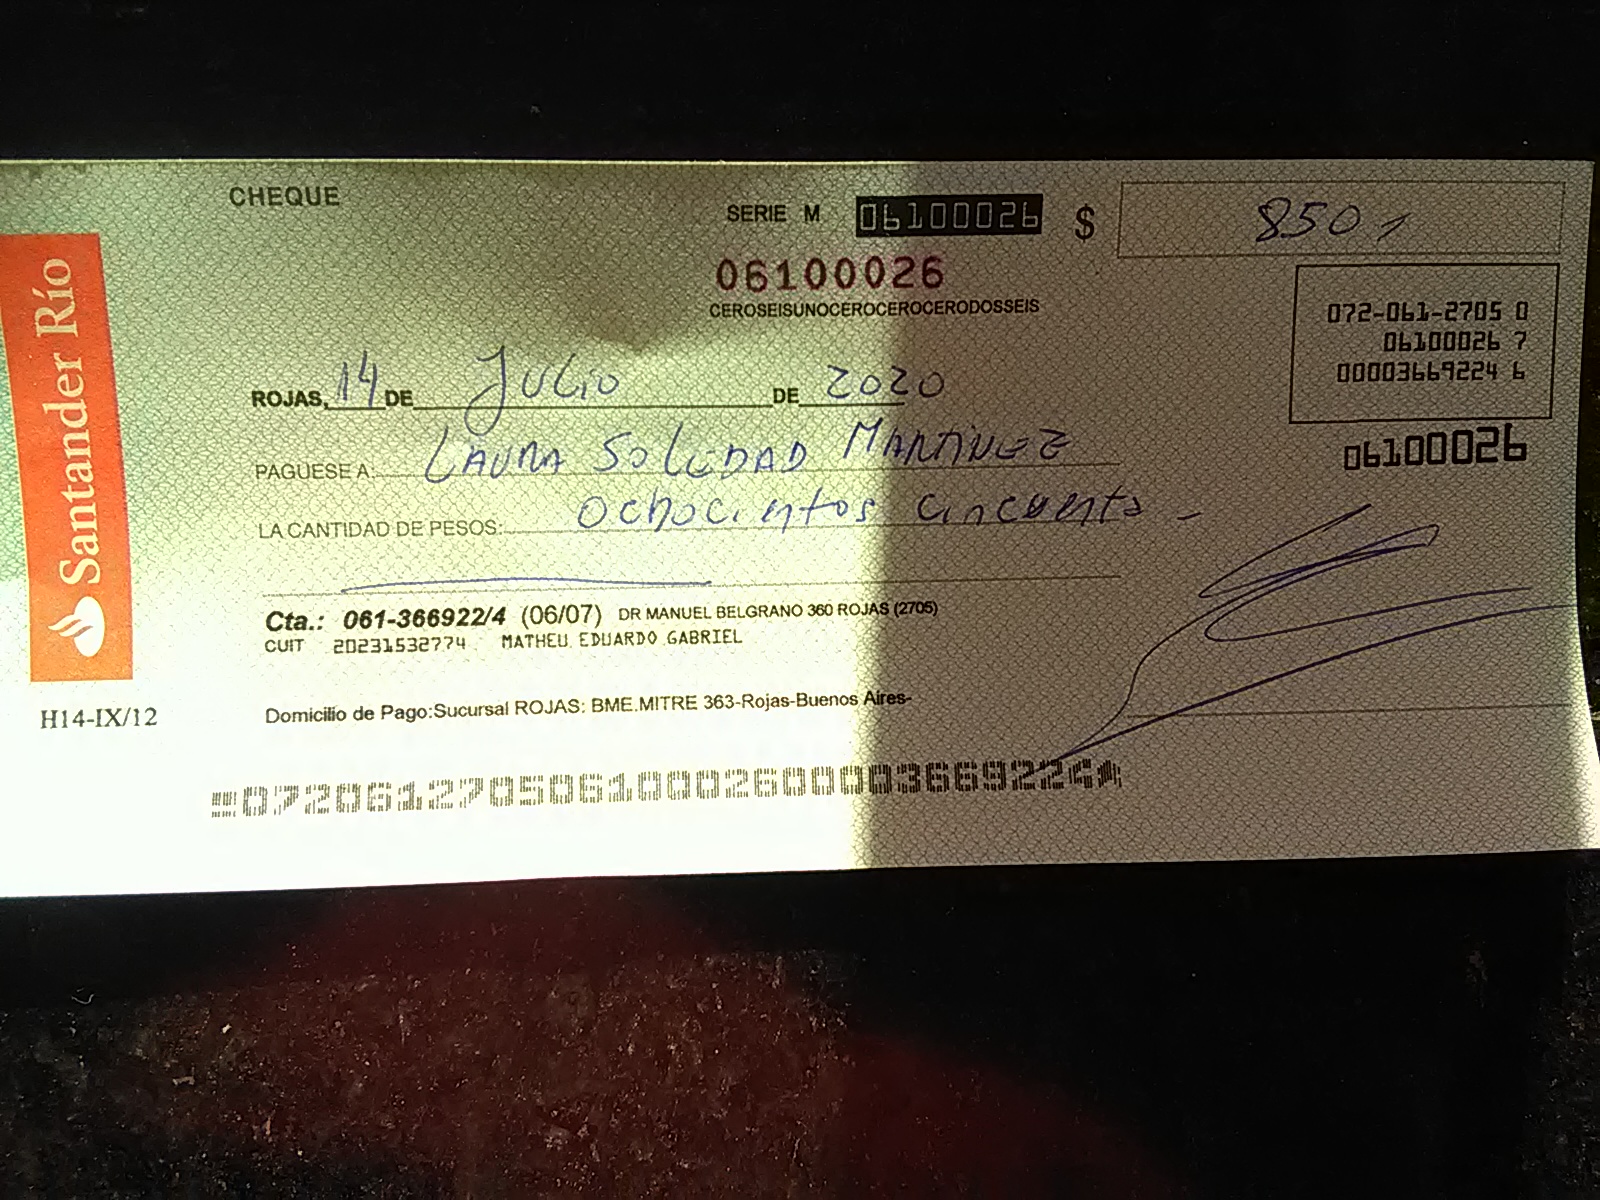 CHEQUE
SERIE M 06100026 $ 850,
06100026
CEROSEISUNOCEROCEROCERODOSSEIS
072-061-2705 0
06100026 7
00003669224 6
06100026
Santander Río
ROJAS, 14 DE Julio DE 2020
PAGUESE A: LAURA SOLEDAD MARTINEZ
LA CANTIDAD DE PESOS: Ochocientos cincuenta -
Cta.: 061-366922/4 (06/07) DR MANUEL BELGRANO 360 ROJAS (2705)
CUIT 20231532774 MATHEU EDUARDO GABRIEL
H14-IX/12
Domicilio de Pago:Sucursal ROJAS: BME.MITRE 363-Rojas-Buenos Aires-
07206127050610002600003669224